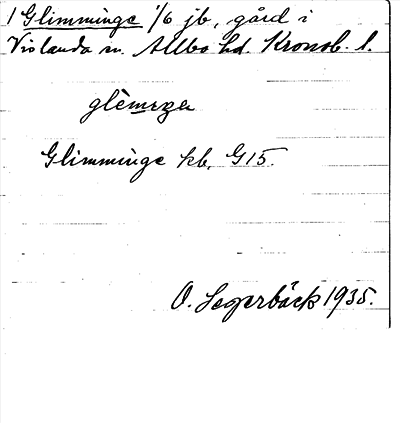 1 Glimminge 1/6 jb, gård i
Vislanda sn. Allbo hd. Kronob. l.
Glimminge kb. G15.
O. Segerbäck 1935.